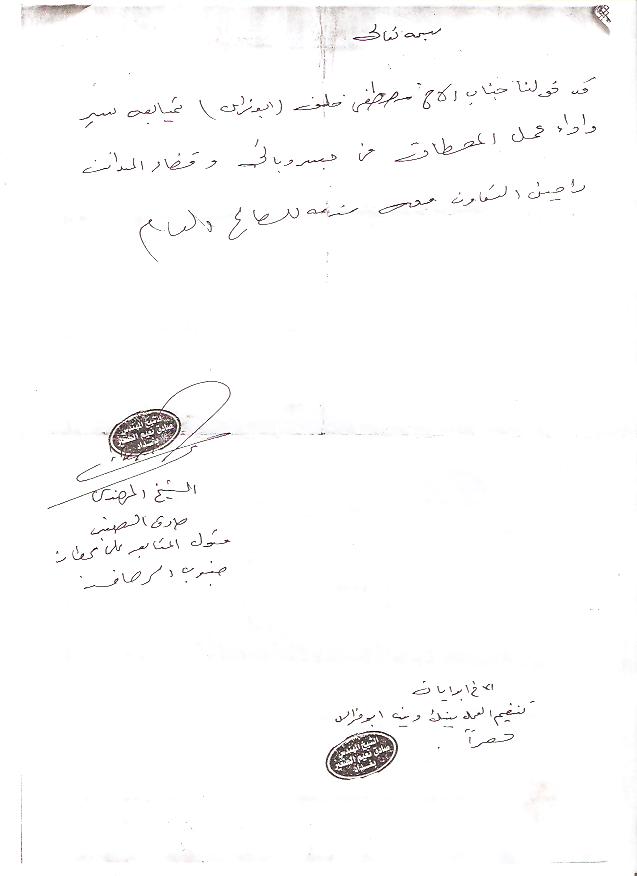 بسمه تعالى
قد خولنا جناب الاخ مصطفى خلف (ابو فراس) بمتابعة سير
واداء عمل المحطات من جسر ديالى وقضاء المدائن
راجين التعاون معه خدمة للصالح العام
الشيخ المهندس
بغداد
الشيخ المهندس
صادق
مسؤول المتابعة على محطات
جنوب الرصافة
الاخ ابو ايات
تنظيم العمل بينك وبين ابو فراس
حصراً .
الشيخ المهندس
بغداد